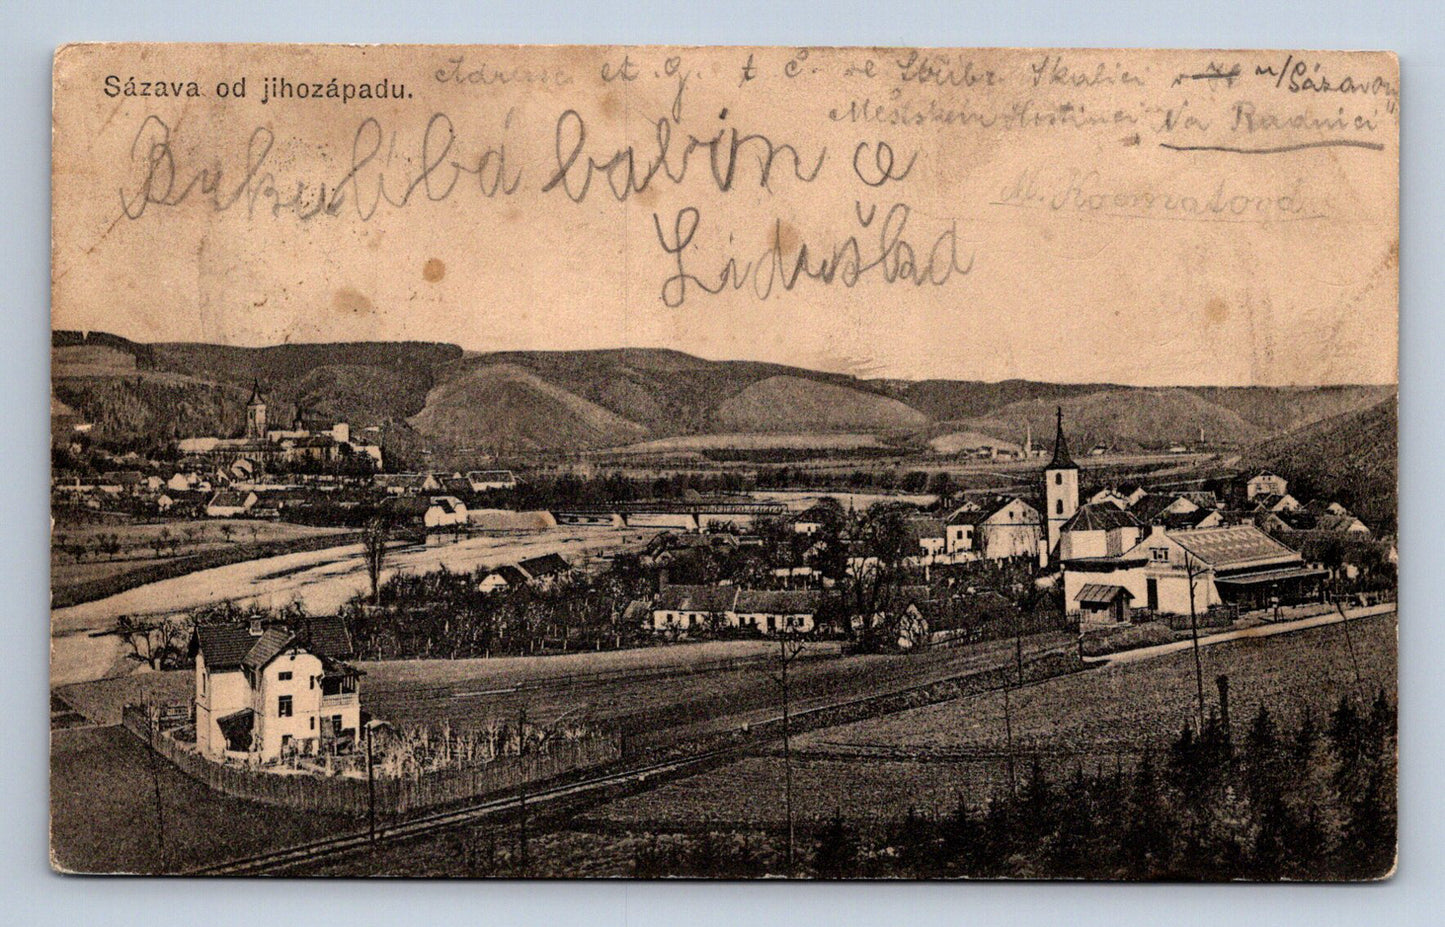 Sázava od jihozápadu.
Adresse et. g. t. č. ve Stříbr. Skalici n/Sázavou
Městském Hostinci "Na Radnici"
líbá babin a
Liduška